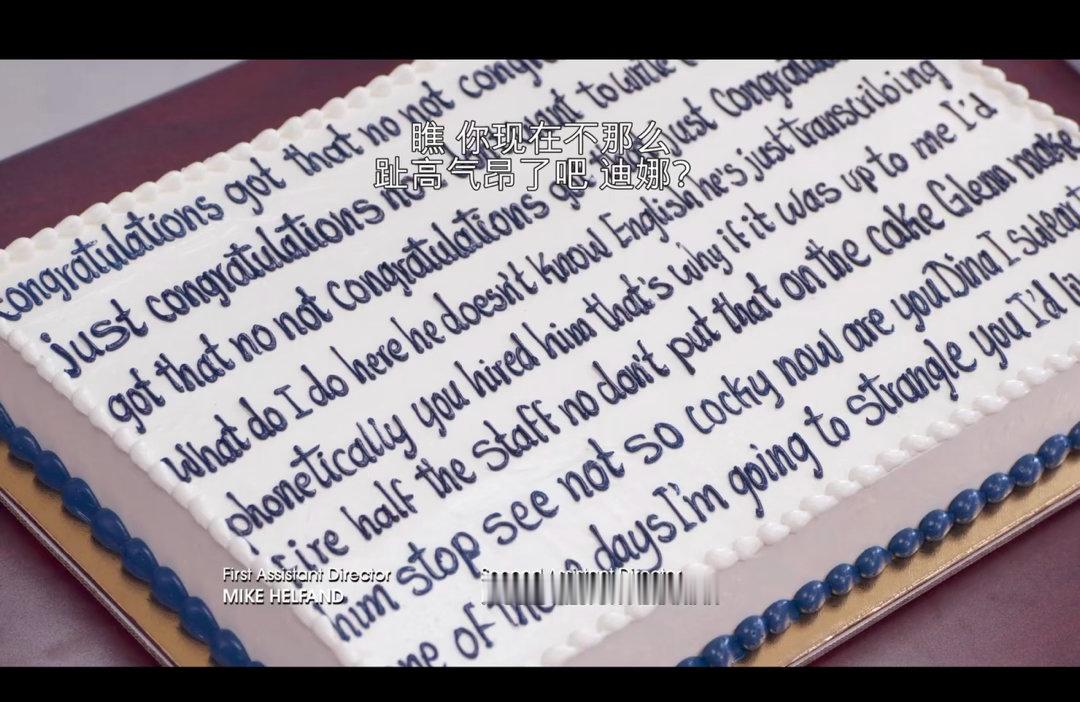 congratulations got that no not
just congratulations no to write
got that no not congratulations just
What do I do here he doesn't know English he's just transcribing
phonetically you hired him that's why if it was up to me I'd
fire half the staff no don't put that on the cake Glenn make
him stop see not so cocky now are you Dina I swear
of days I'm going to strangle you I'd
瞧 你现在不那么
趾高气昂了吧 迪娜？
First Assistant Director
MIKE HELFAND